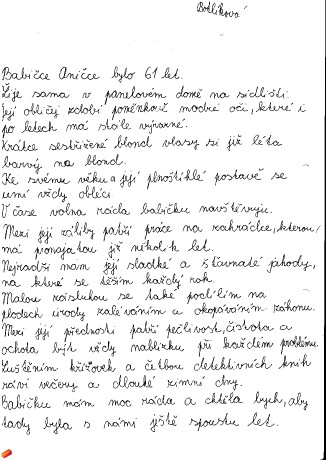 Botlíková
Babičce Aničce bylo 61 let.
Žije sama v panelovém domě na sídlišti.
Její obličej zdobí pomněnkově modré oči, které i
po letech má stále výrazné.
Krátce sestřižené blond vlasy si již léta
barví na blond.
Ke svému věku a její plnoštíhlé postavě se
umí vždy obléci.
V čase volna ráda babičku navštěvuji.
Mezi její záliby patří práce na zahrádce, kterou
má pronajatou již několik let.
Nejradši mám její sladké a šťavnaté jahody,
na které se těším každý rok.
Malou zásluhou se také podílím na
plodech úrody zaléváním a okopáváním záhonu.
Mezi její přednosti patří pečlivost, čistota a
ochota být vždy nablízku při každém problému.
Luštěním křížovek a četbou detektivních knih
tráví večery a dlouhé zimní dny.
Babičku mám moc ráda a chtěla bych, aby
tady byla s námi ještě spoustu let.